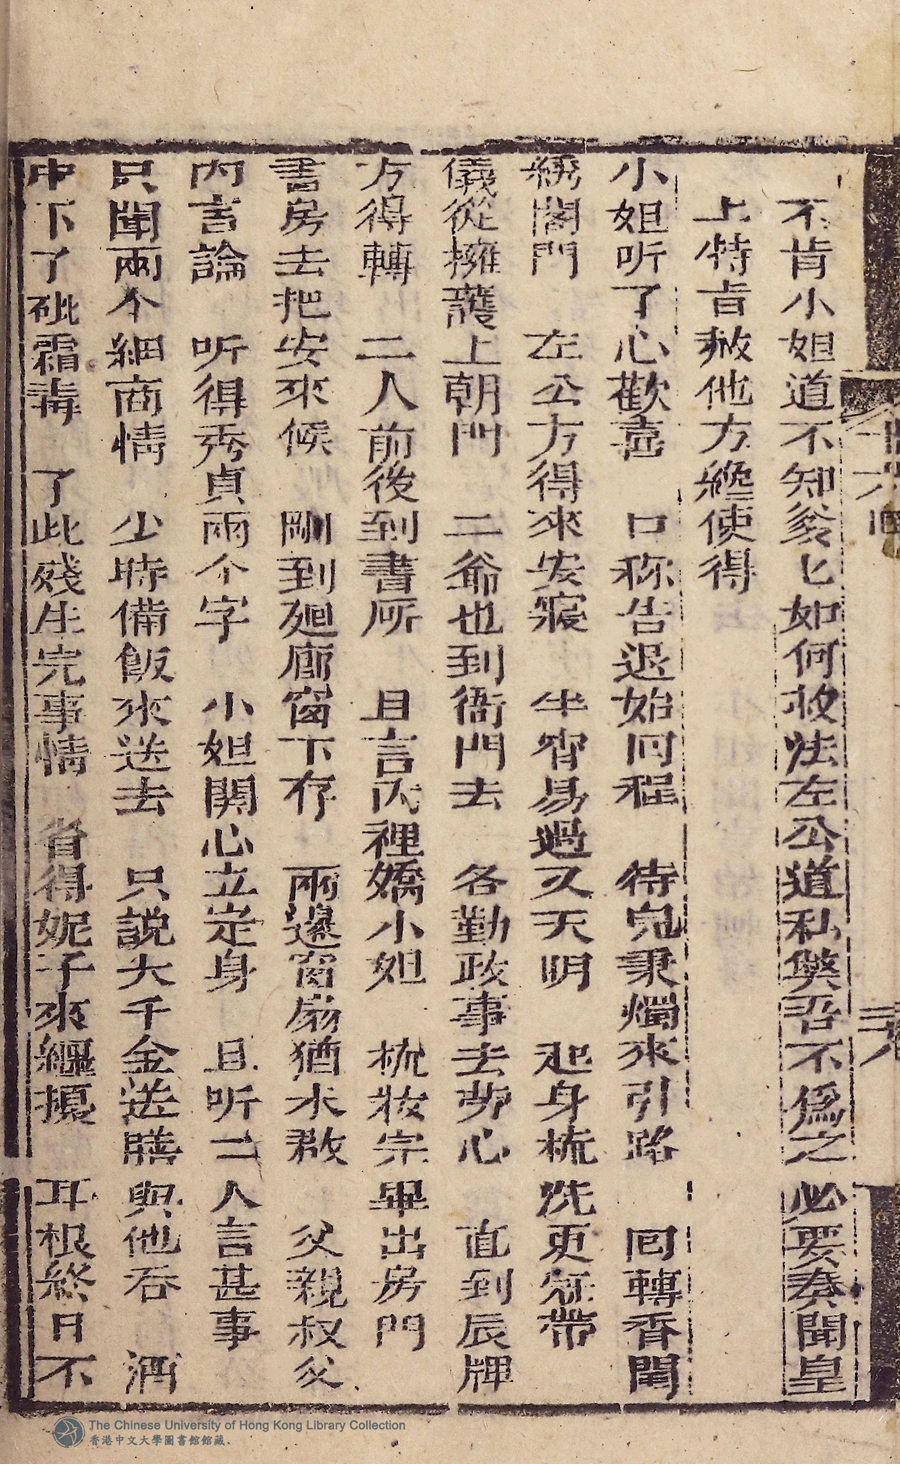 不肯小姐道不知爹匕如何救法左公道私獘吾不爲之必要奏聞皇
上特旨赦他方纔使得
小姐听了心歡喜　口称告退始回程　待兒秉燭來引路　回轉香閨
綉閣門　左公方得來安寢　半宵易過又天明　起身梳洗更冠帶
儀從擁護上朝門　二爺也到衙門去　各勤政事去勞心　直到辰牌
方得轉　二人前後到書房　且言內裡嬌小姐　梳妝完畢出房門
書房去把安來候　剛到廻廊窗下存　兩邊窗扇猶未啟　父親叔父
內言論　听得秀貞兩个字　小姐関心立定身　且听二人言甚事
只聞兩个細商情　少時備飯來送去　只說大千金送膳與他吞　酒
中下了砒霜毒　了此殘生完事情　省得妮子來纒擾　耳根終日不
The Chinese University of Hong Kong Library Collection
香港中文大學圖書館館藏